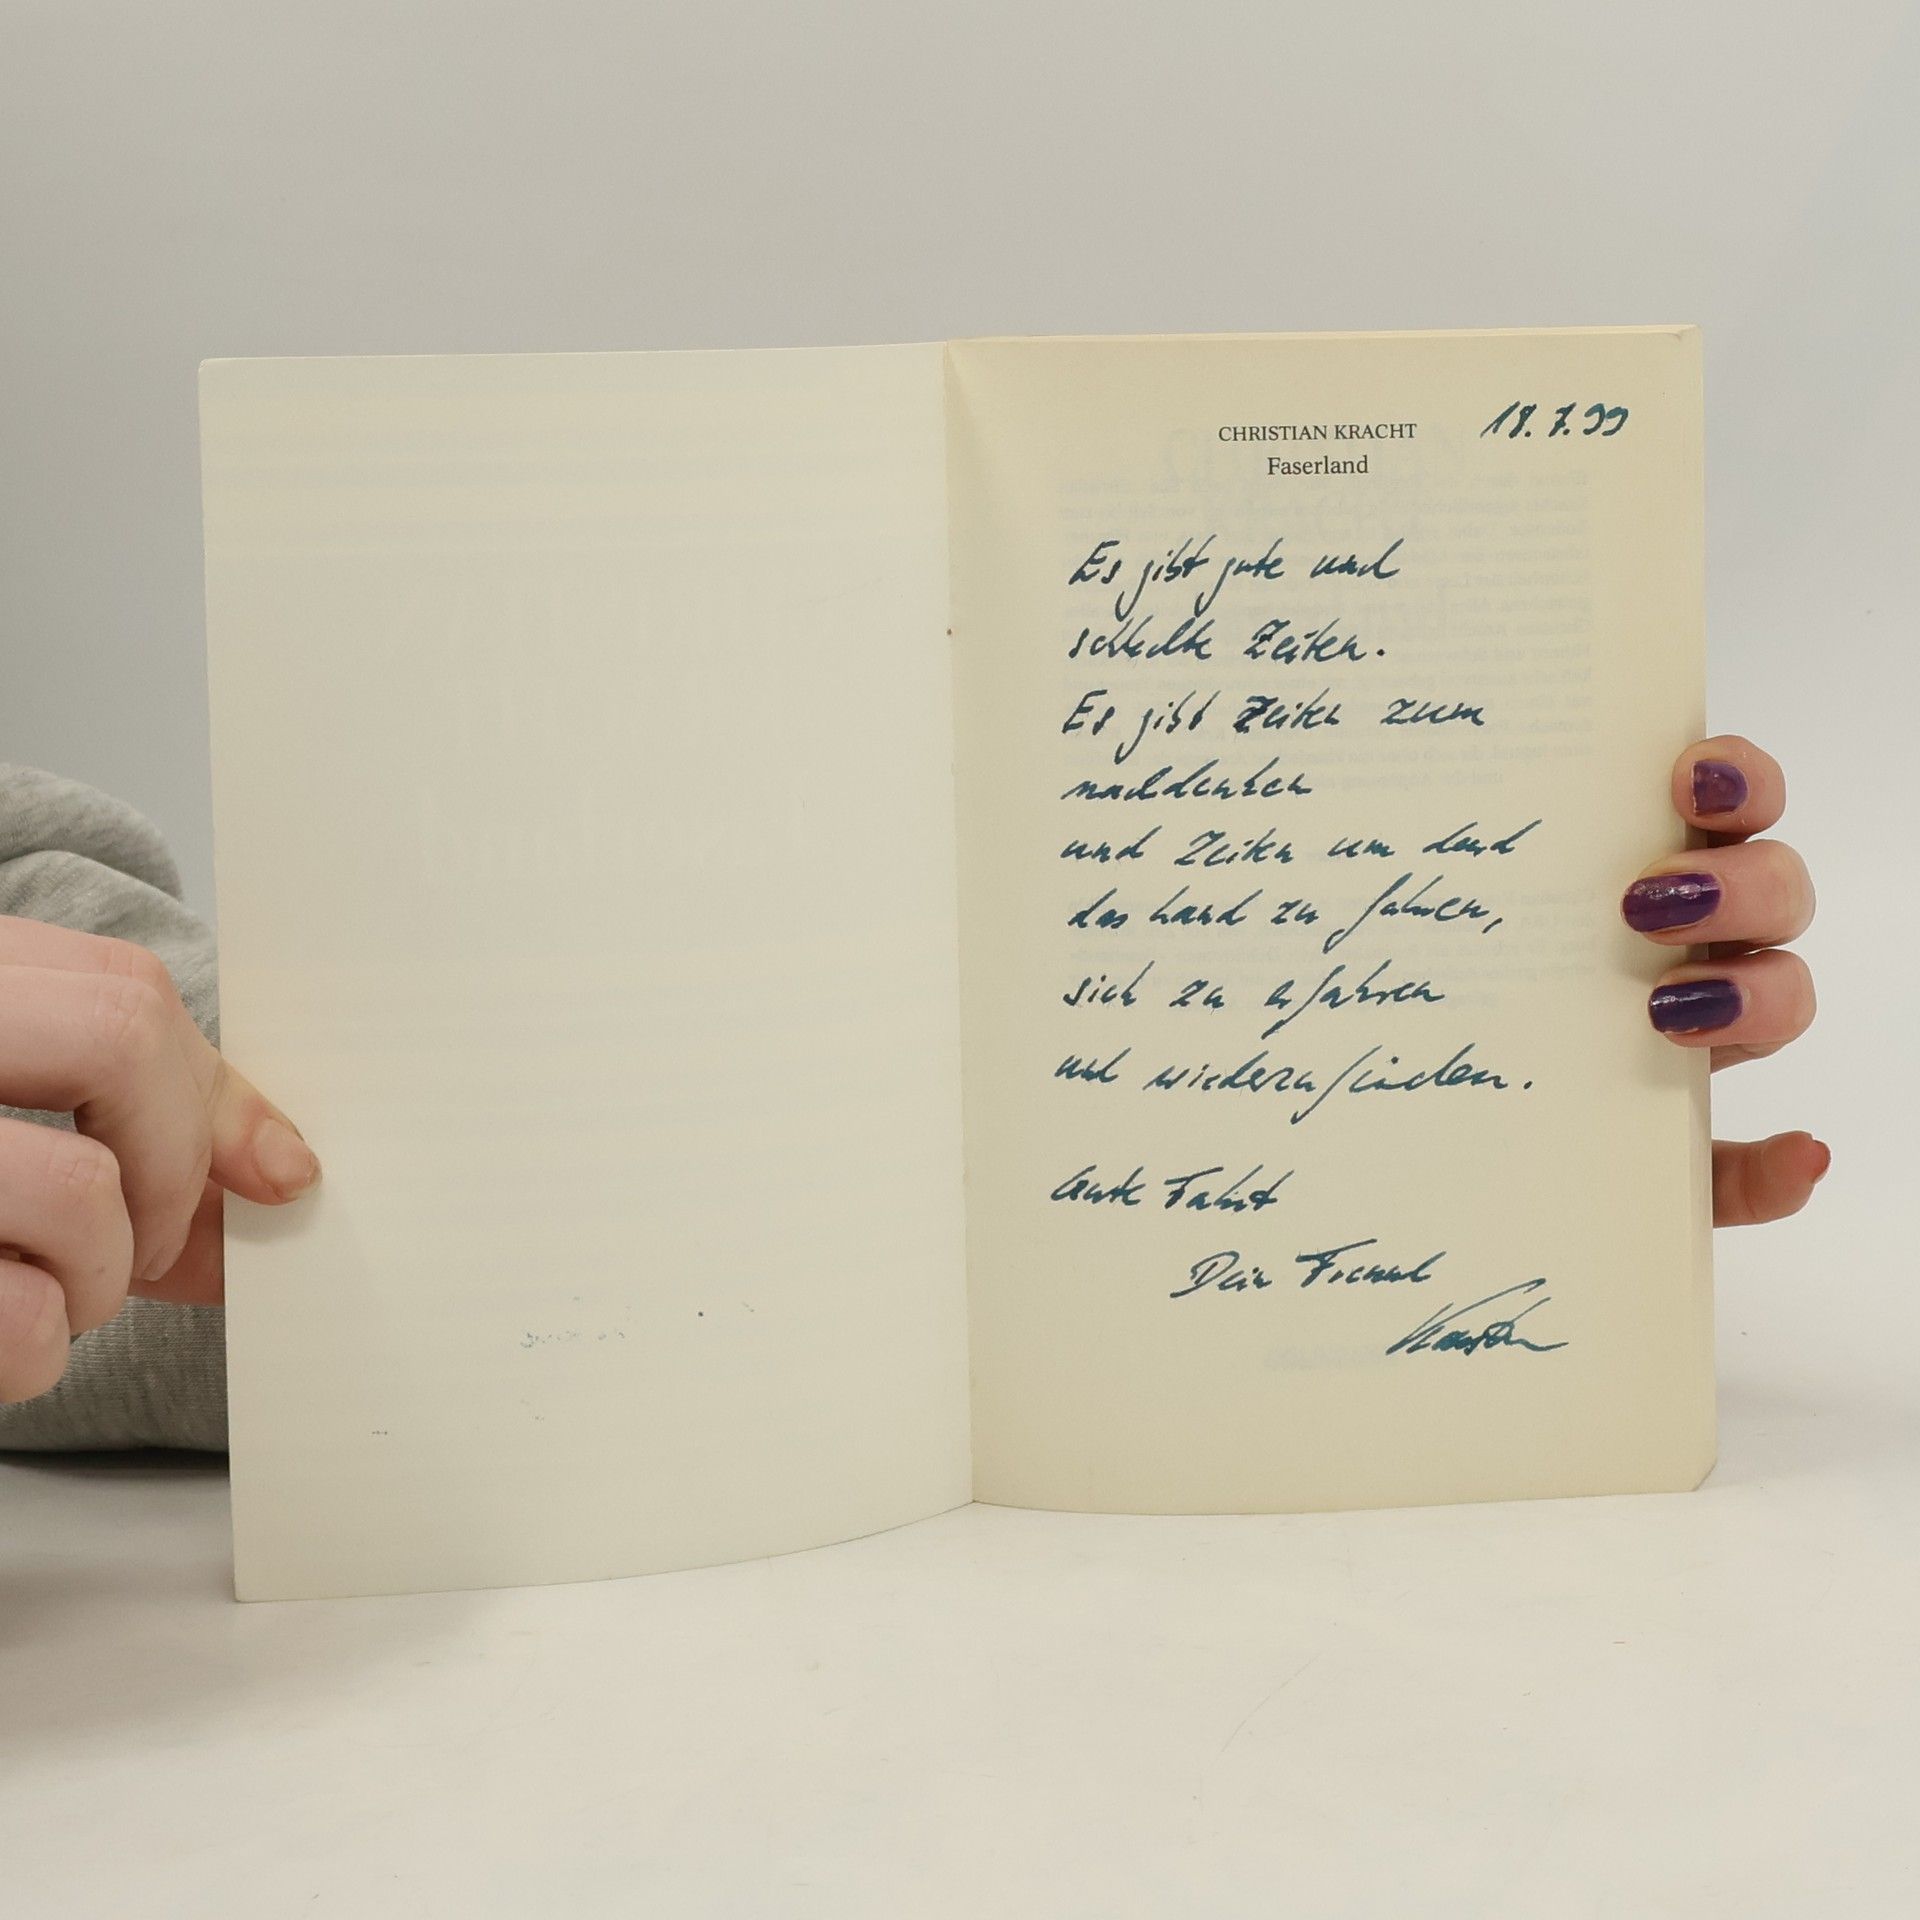 CHRISTIAN KRACHT 18.7.99
Faserland
Es gibt gute und
schlechte Zeiten.
Es gibt Zeiten zum
nachdenken
und Zeiten um durch
das Land zu fahren,
sich zu erfahren
und wiederzufinden.
Gute Fahrt
Dein Freund